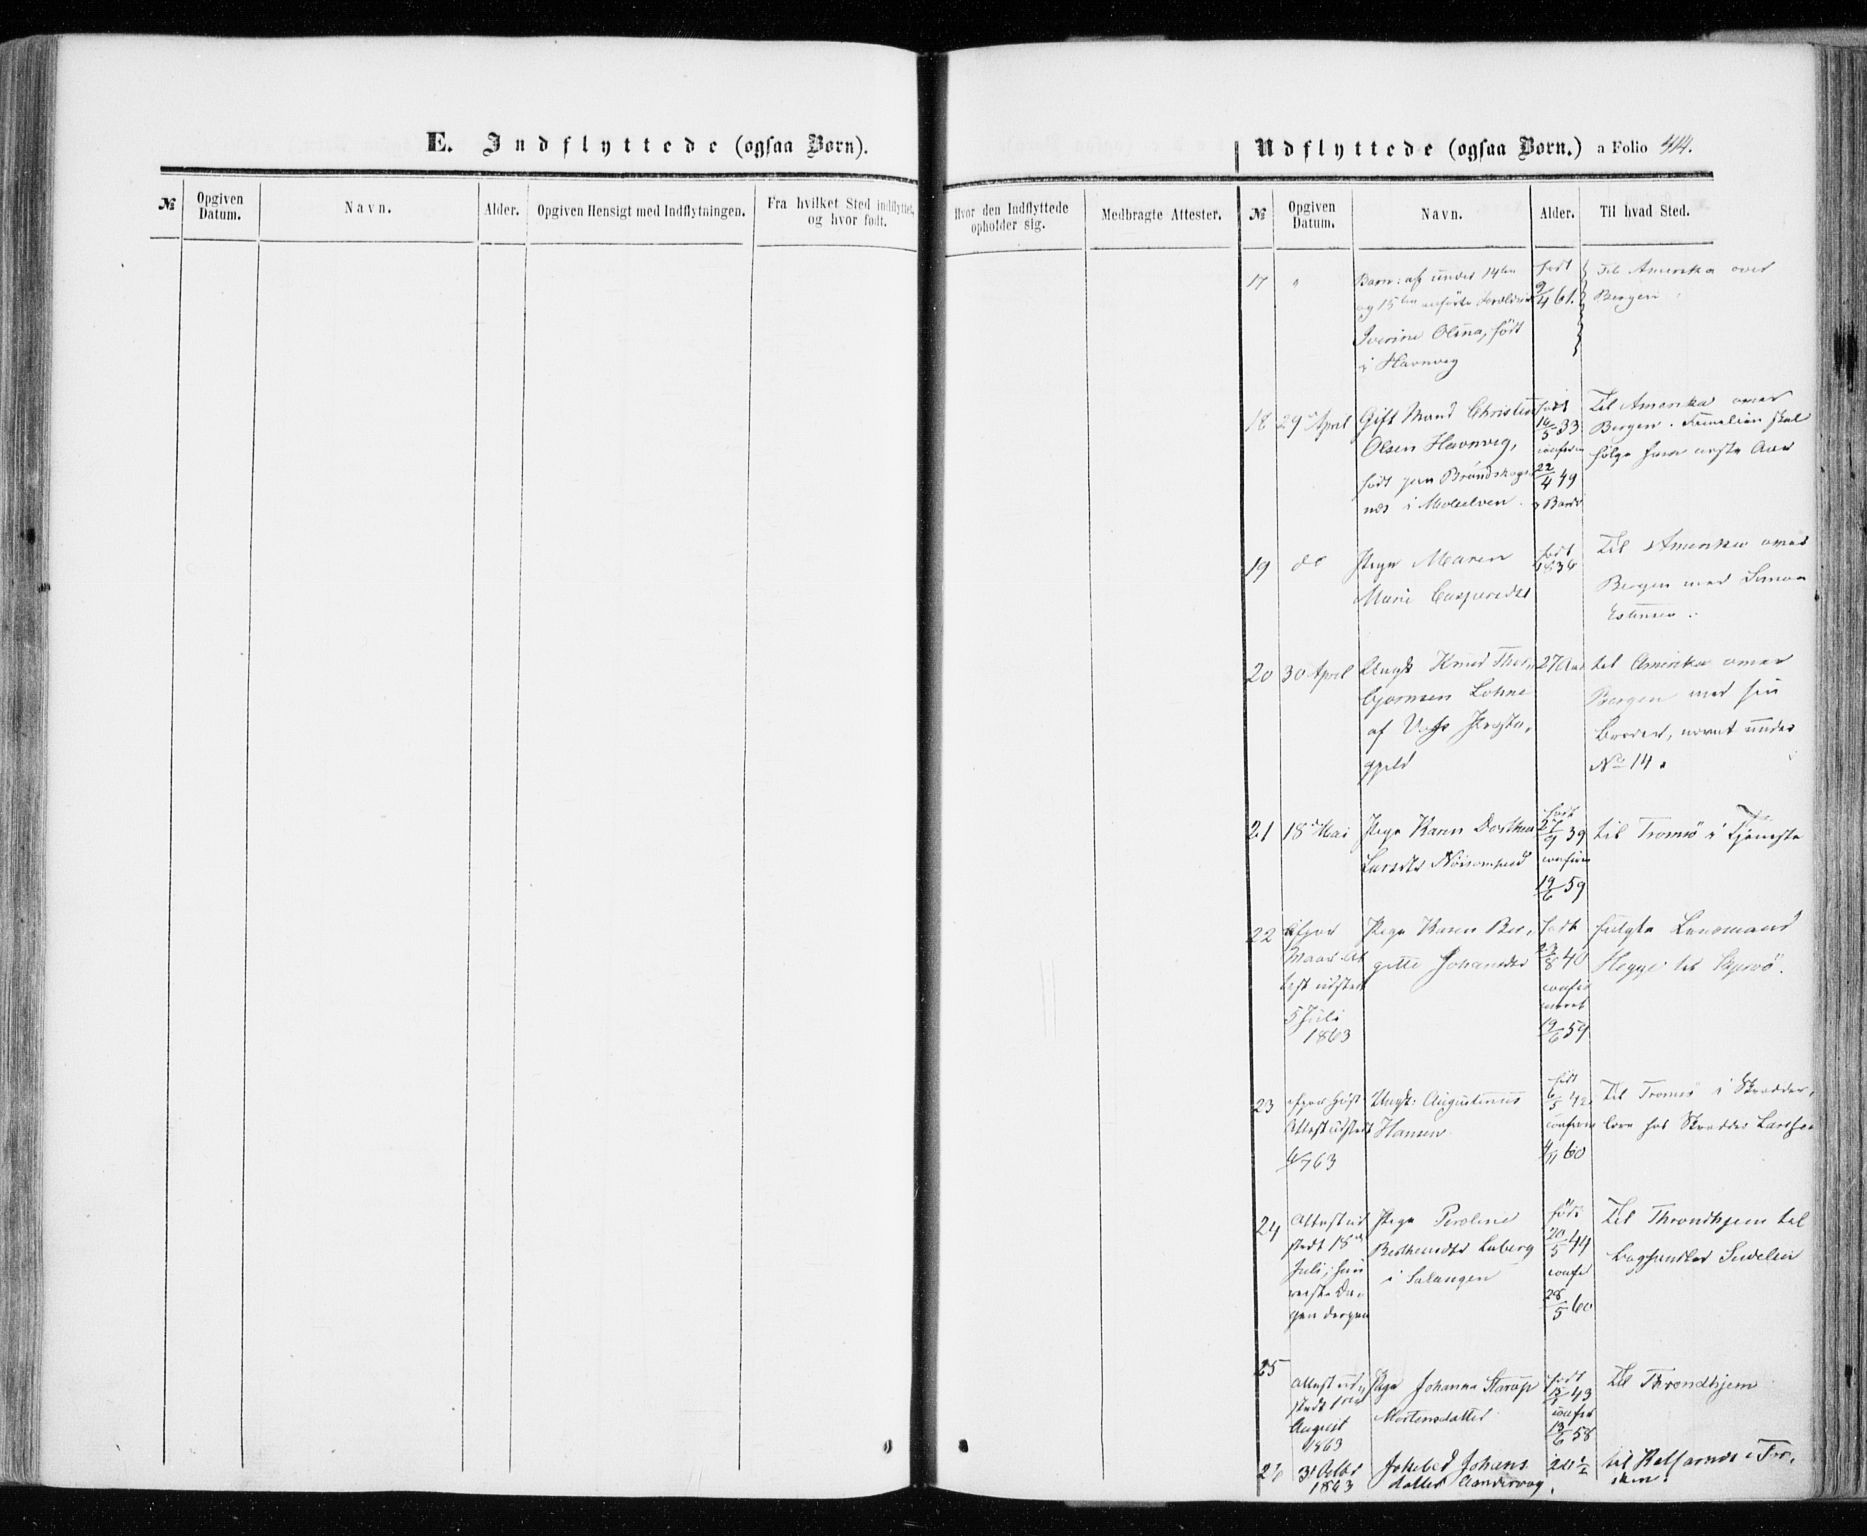 E. Indflyttede (ogsaa Børn).
№
Opgiven Datum.
Navn.
Alder.
Opgiven Hensigt med Indflytningen.
Fra hvilket Sted indflyttet, og hvor født.
Udflyttede (ogsaa Børn.) a Folio 414.
Hvor den Indflyttede opholder sig.
Medbragte Attester.
№
Opgiven Datum.
Navn.
Alder.
Til hvad Sted.
17 "
Barn: af under 14de
og 15de anførte
Iverine Olina, født
i Havnvig
født
9/4 61.
Til Amerika over
Bergen
18 29 April
Gift Mand Christen
Olsen Havnvig,
født paa
i Maalselven
født
16/5 33
confirm
22/4 49
i Bardo
Til Amerika over
Bergen. Familien skal
følge ham næste Aar
19 do
Pige Maren
Marie Caspersdtr
født
1836
Til Amerika over
Bergen med Simon
Estensen
20 30 April
Ungk Knud Thor-
bjørnsen Lohne
af Voss Præste-
gjeld
27 Aar
til Amerika over
Bergen med sin
Broder, nævnt under
No 14.
21 18 Mai
Pige Karen Dorthea
Larsdtr Nøisomhed
født
27/9 39
confirm
19/6 59
til Tromsø i Tjeneste
22
Attest udstedt
5 Juli
1863
Pige Karen Ber-
gitte Johansdtr
født
23/8 40
confir
meret
19/6 59
fulgte Lensmand
Hegge til
23
Attest udstedt
63
Ungk: Augustinus
Hansen
født
6/5 42
confirm
60
Til Tromsø i Skrædder-
lære hos Skrædder
24 Attest ud
stedt 18de
Juli; hun
reiste Da-
gen derpaa
Pige Peroline
Berthendtr Laberg
i Salangen
født
20/5 44
confir
28/5 60
Til Throndhjem til
Boghandler
25
Attest ud-
stedt
August
1863
Pige Johanna Starup
Mortensdatter
født
43
confir
13/6 58
Til Throndhjem
26 3 Octbr
1863
Jokobed Johans
datter Aandervag.
20 1/2
til i Tor-
sken.